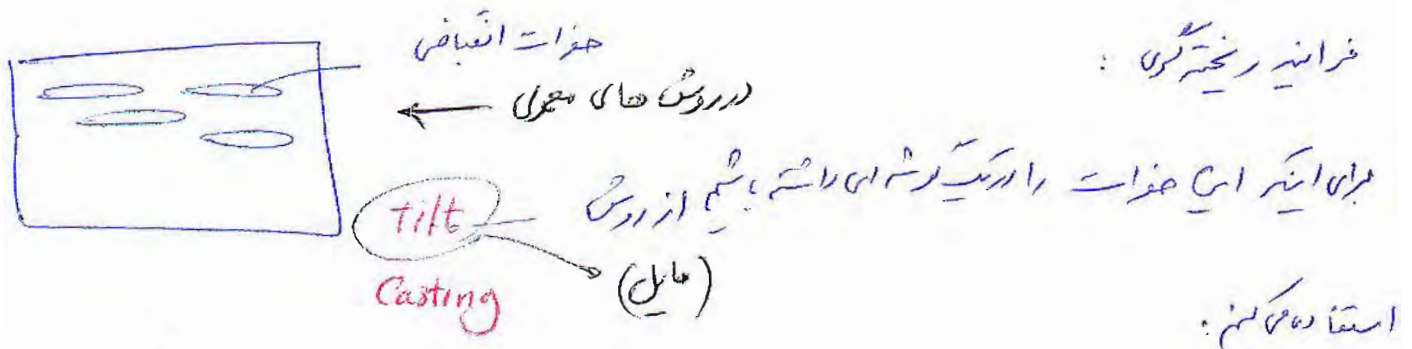 فرایند ریخته‌گری :
حفرات انقباضی
در روش های معمولی ←
برای اینکه این حفرات را در یک گوشه ای داشته باشیم از روش
tilt
(مایل)
Casting
استفاده می کنیم :